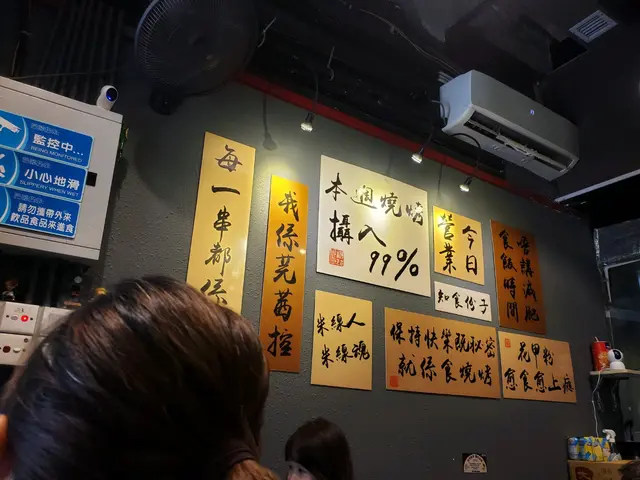 監控中...
BEING MONITORED
小心地滑
SLIPPERY WHEN WET
請勿攜帶外來
飲品食品來進食
每一串都係
我係芫茜控
本週燒烤
攝入
99%
今日
營業
知食份子
唔講減肥
食飯時間
米線人
米線魂
保持快樂既秘密
就係食燒烤
花甲粉
愈食愈上癮